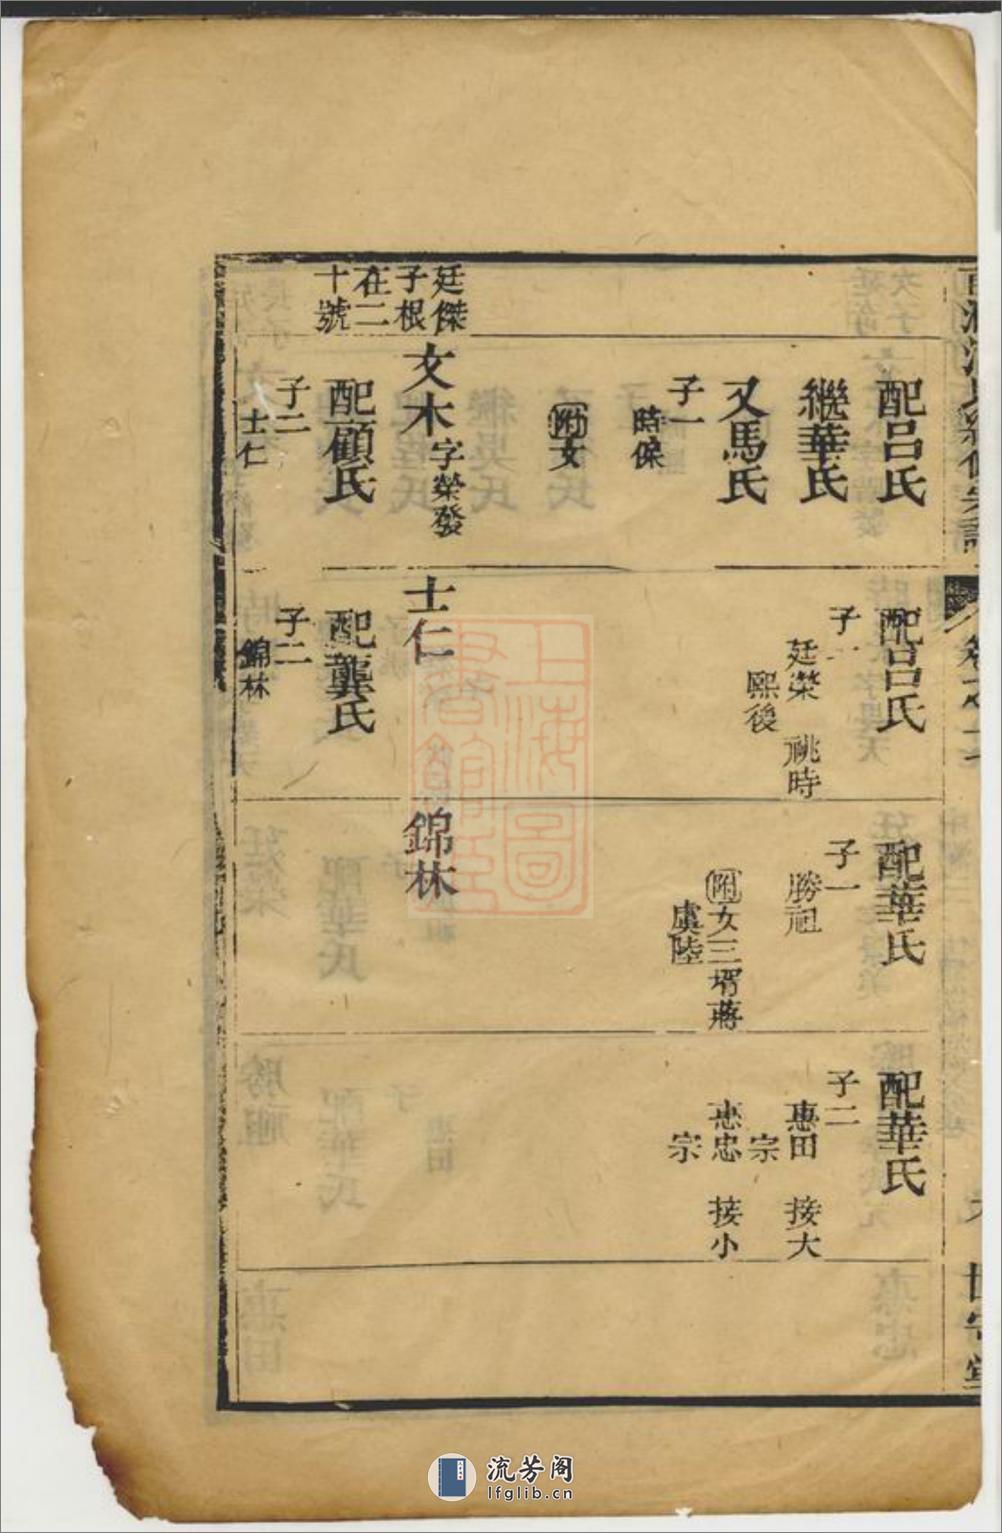 配呂氏
繼華氏
又馬氏
子一
時傑
附女
廷傑
子根
在二
十號
文木字榮發
配顧氏
子二
士仁
配呂氏
子一
廷榮 祧時
熙後
士仁
配龔氏
子二
錦林
配華氏
子一
勝祖
附女三壻蔣
虞陸
錦林
配華氏
子二
惠田 接大
宗
惠忠 接小
宗
上海圖
書館藏
流芳阁
lfglib.cn